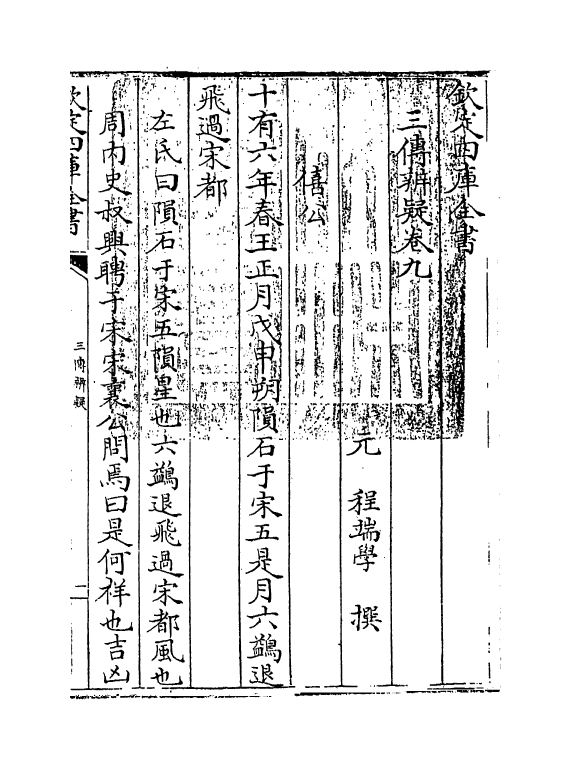 欽定四庫全書
三傳辨疑卷九
元 程端學 撰
僖公
十有六年春王正月戊申朔隕石于宋五是月六鷁退
飛過宋都
左氏曰隕石于宋五隕星也六鷁退飛過宋都風也
周內史叔興聘于宋宋襄公問焉曰是何祥也吉凶
欽定四庫全書
三傳辨疑